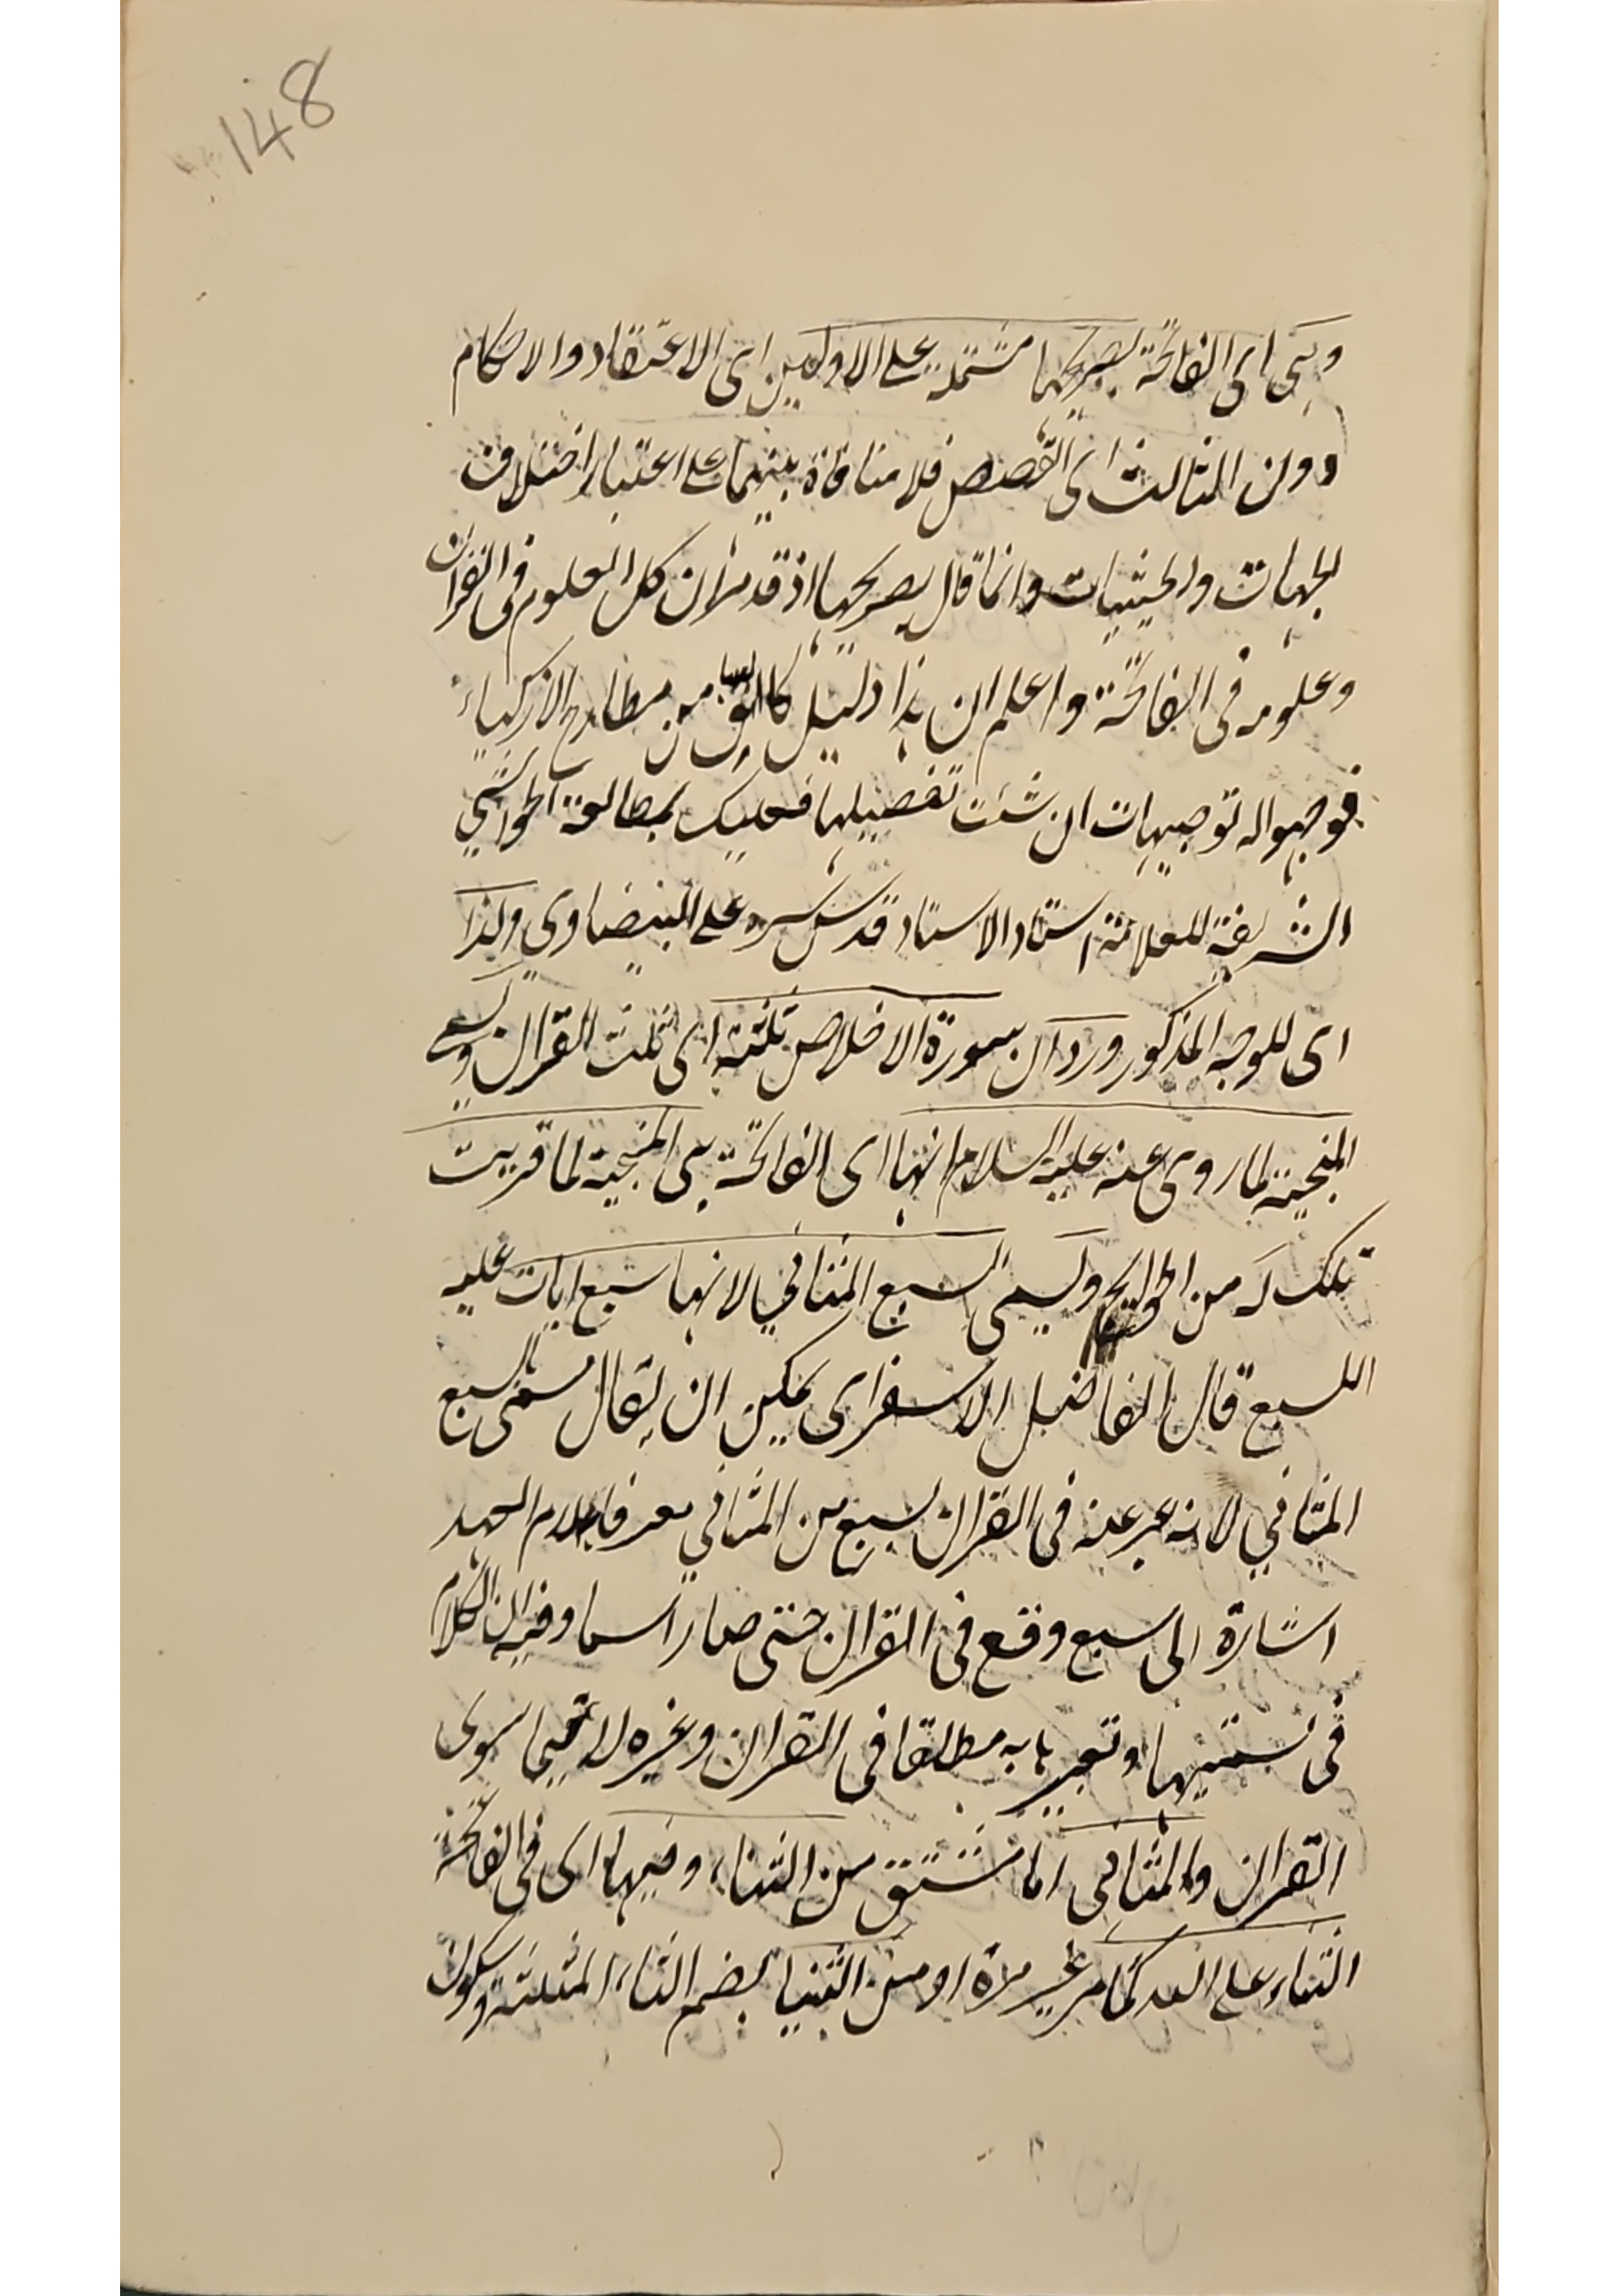 148
وهي اى الفاتحة بصريحها مشتملة على الاولين اى الاعتقاد والاحكام
دون الثالث اى القصص فلا منافاة بينهما على اعتبار اختلاف
الجهات والحيثيات وانما قال بصريحها اذ قد مر ان كل العلوم فى القران
وعلومه فى الفاتحة واعلم ان هذا دليل كان من مطارح الازكياء
فوجهوا له توجيهات ان شئت تفصيلها فعليك بمطالعة الحواشي
الشريفة للعلامة استاد الاستاد قدس سره على البيضاوى ولذا
اى للوجه المذكور ورد ان سورة الاخلاص ثلثه اى ثلث القران وتسمى
المنجية لما روى عنه عليه السلام انها اى الفاتحة هى المنجية لما قريت
تلك له من الحوايج وتسمى السبع المثاني لانها سبع ايات عليه
السبع قال الفاضل الاسفراى يمكن ان يقال مسمى بالسبع
المثاني لانه عبر عنه فى القران بسبع من المثاني معرفا بلام العهد
اشارة الى سبع وقع فى القران حتى صار اسما وفيه ان الكلام
فى تسميتها وتعبيرها به مطلقا فى القران وغيره لا سوى
القران والمثانى اما مشتق من الثناء وفيها اى فى الفاتحة
الثناء على الله كما مر غير مرة او من الثنيا بضم الثاء المثلثة وسكون